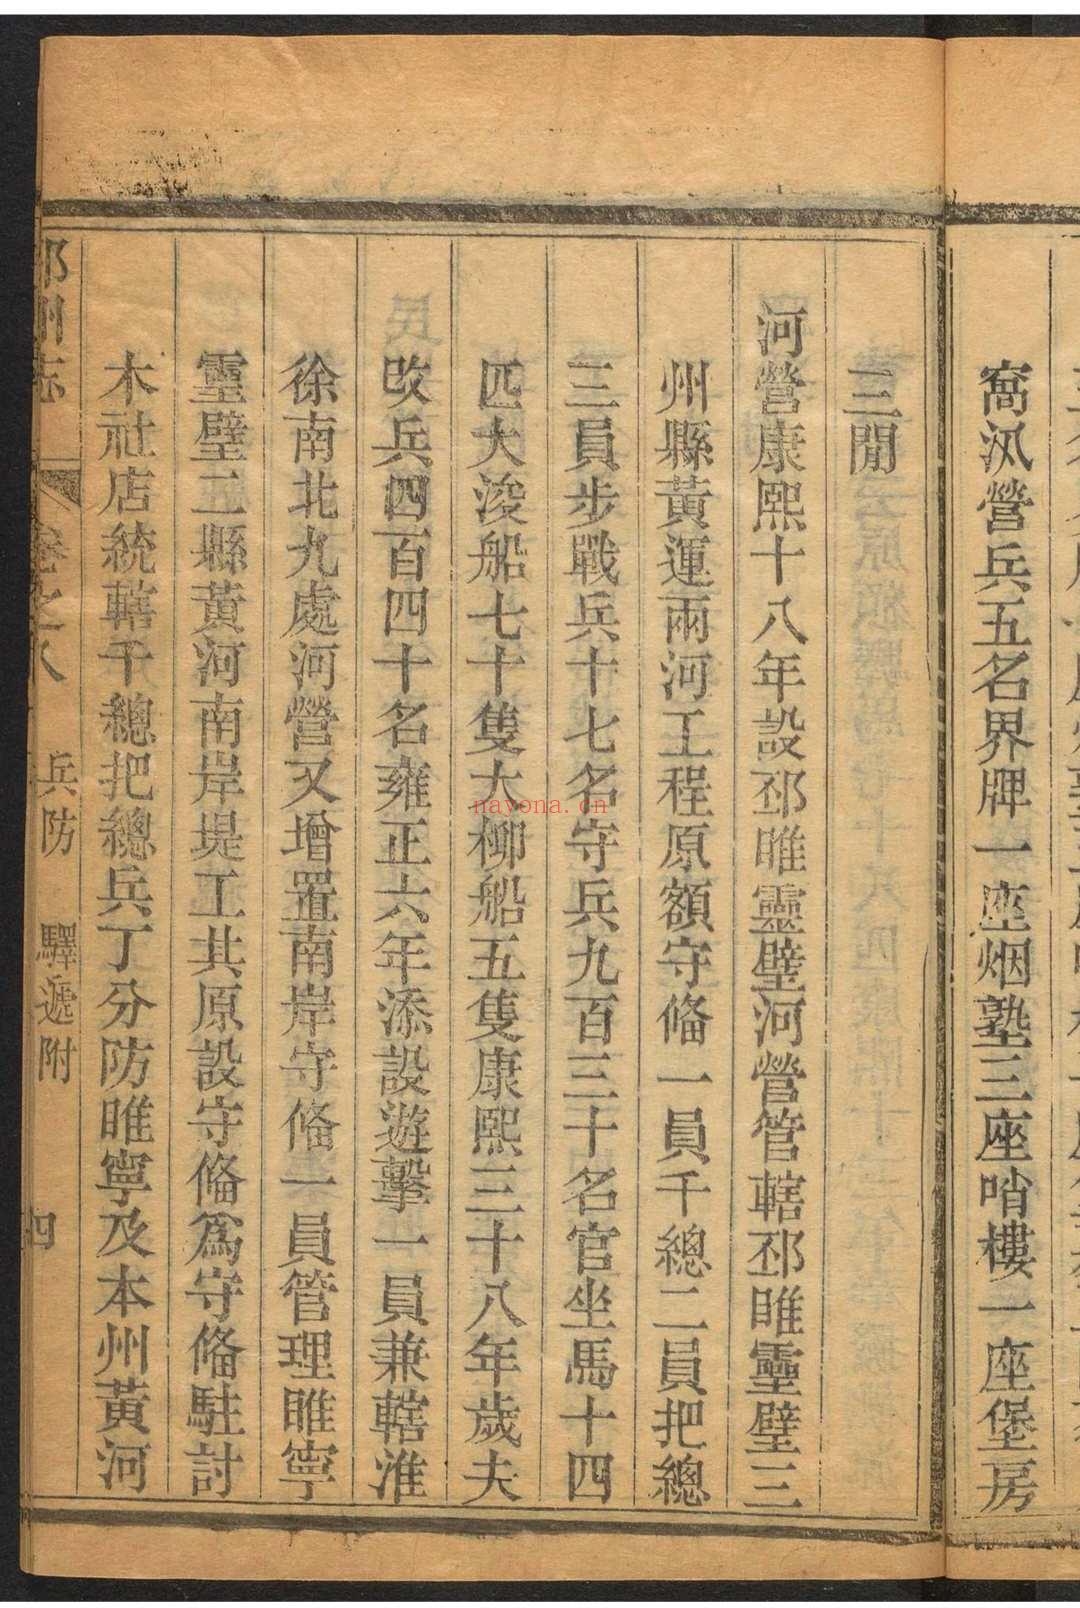 窩汛營兵五名界牌一座烟墪三座哨樓一座堡房
三間
河營康熙十八年設邳睢靈璧河營管轄邳睢靈璧三
州縣黃運兩河工程原額守備一員千總二員把總
三員步戰兵十七名守兵九百三十名官坐馬十四
匹大浚船七十隻大柳船五隻康熙三十八年歲夫
改兵四百四十名雍正六年添設遊擊一員兼轄淮
徐南北九處河營又增置南岸守備一員管理睢寧
靈璧二縣黃河南岸堤工其原設守備爲守備駐討
木社店統轄千總把總兵丁分防睢寧及本州黃河
邳州志 卷之八 兵防 驛遞附 四
nayona.cn